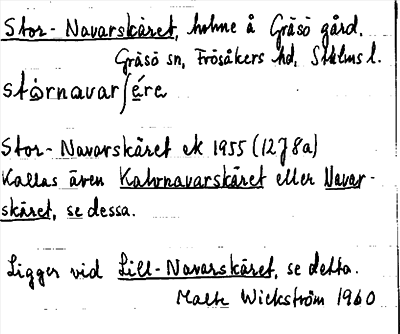 Stor-Navarskäret, holme å Gräsö gård,
Gräsö sn, Frösåkers hd, Sthlms l.
stórnavarʃére
Stor-Navarskäret ek 1955 (12J8a)
Kallas även Kalvnavarskäret eller Navar-
skäret, se dessa.
Ligger vid Lill-Navarskäret, se detta.
Malte Wickström 1960